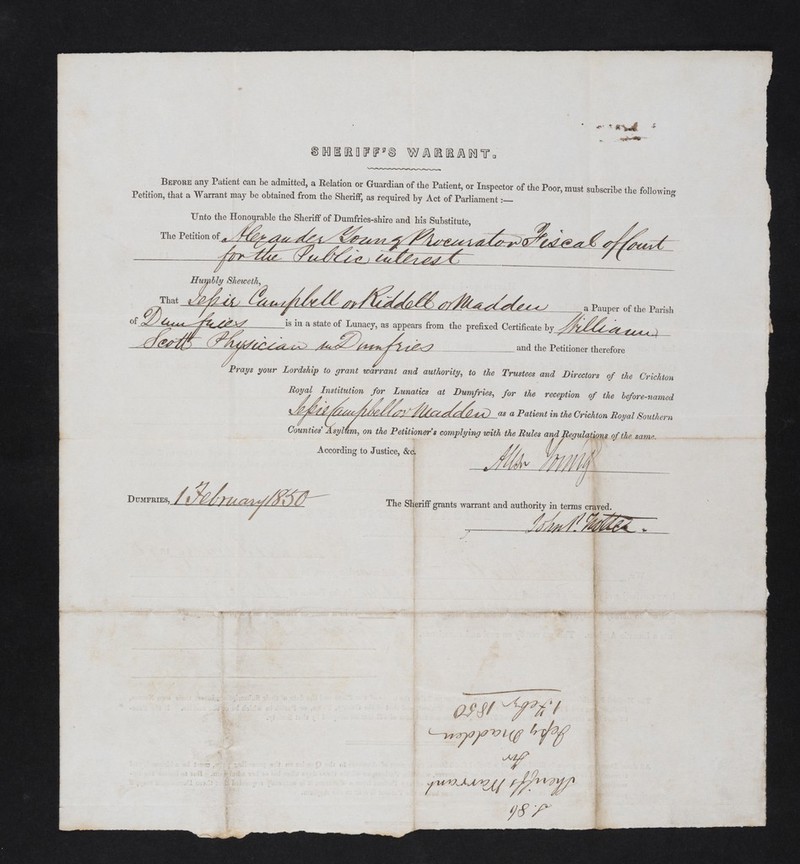 SHERIFF'S WARRANT.
BEFORE any Patient can be admitted, a Relation or Guardian of the Patient, or Inspector of the Poor, must subscribe the following
Petition, that a Warrant may be obtained from the Sheriff, as required by Act of Parliament :—
Unto the Honourable the Sheriff of Dumfries-shire and his Substitute,
The Petition of Alexander Young Procurator Fiscal of Court
for the Public interest
Humbly Sheweth,
That Jessie Campbell or Riddell or Madden a Pauper of the Parish
of Dumfries is in a state of Lunacy, as appears from the prefixed Certificate by William
Scott Physician in Dumfries and the Petitioner therefore
Prays your Lordship to grant warrant and authority, to the Trustees and Directors of the Crichton
Royal Institution for Lunatics at Dumfries, for the reception of the before-named
Jessie Campbell or Madden as a Patient in the Crichton Royal Southern
Counties' Asylum, on the Petitioner's complying with the Rules and Regulations of the same.
According to Justice, &c.
Young
DUMFRIES, 1 February 1850
The Sheriff grants warrant and authority in terms craved.
John
Sheriff's Warrant
for
Jessy Madden
1 Feby 1850